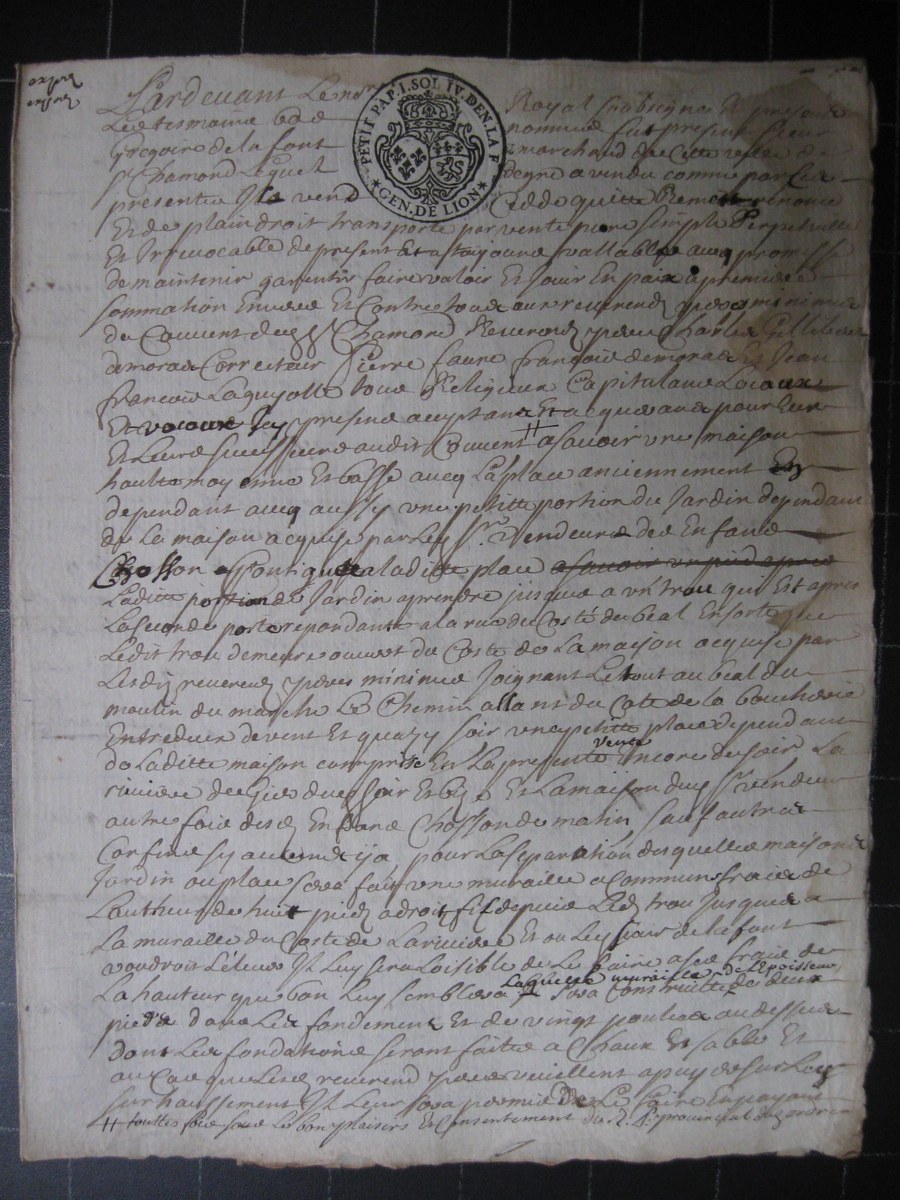 PETIT PAP. I. SOL IV. DEN. LA F
GEN. DE LION
Pardevant Le no.re Royal Soubsigné &
Les tesmoins bas nommés fut present sieur
Gregoire de la font marchand de Cette ville de
S.t Chamond Lequel de gré a vendu comme par Ces
presentes Il vend Cedde quitte Remet
Et de plain droit transporte par vente pure simple Perpetuelle
Et Irrevocable des present Et a toujours vallable avec promesse
de maintenir garentir faire valoir Et Jouir En paix a premiere
sommation Envers Et Contre tous aux reverends peres minimes
du Couvent de S.t Chamond Reverend pere Charles
de moras Correcteur Pierre faure françois demoras Et Jean
francois Laguyolle tous Religieux Capitulans Locaux
Et vocaux Icy presens acceptans Et acquerans pour Eux
Et Leurs successeurs audit Couvent # a scavoir une maison
haulte moyenne Et basse avec La place anciennement
dependant avec aussy une petitte portion du Jardin dependant
de La maison acquise par Led. Sr. Vendeur des Enfans
Chosson Contigue a la ditte place a scavoir un pied apres
Laditte portion de Jardin a prendre jusques a un trou qui Est apres
La seconde porte repondante a la rue du Costé du beal En sorte que
Ledit trou demeure ouvert du Costé de La maison acquise par
Lesd. reverends peres minimes Joignant Le tout au beal du
moulin du marché Le Chemin allant du Coté de la boucherie
Entredeux de vent Et quazy soir une petitte place dependant
de Laditte maison comprise En La presente vente Encore de soir La
riviere de Gie de soir Et bize Et La maison dud. Sr. vendeur
autre fois desd. Enfans Chosson de matin sauf autres
Confins sy aucuns y a pour La separation desquelles maisons
Jardin ou place sera fait une muraille a Communs fraix de
L'autheur de huit pieds a droit fil depuis Led. trou Jusques a
La muraille du Coste de La riviere Et ou Led. sieur de la font
voudroit L'elever Il Luy sera Loisible de Le faire a ses fraix de
La hauteur que bon Luy semblera Laquelle muraille sera Construitte de L'epaisseur de deux
pieds dans Les fondements Et de vingt pouces au dessus
dont Les fondations seront faites a Chaux Et sable Et
au Cas que Lesd. reverend peres veuillent apuyer sur Led.
surhaussement Il Leur sera permis de Le faire En payant
# touttes fois sous Le bon plaisir Et Consentement du R. P. provincial